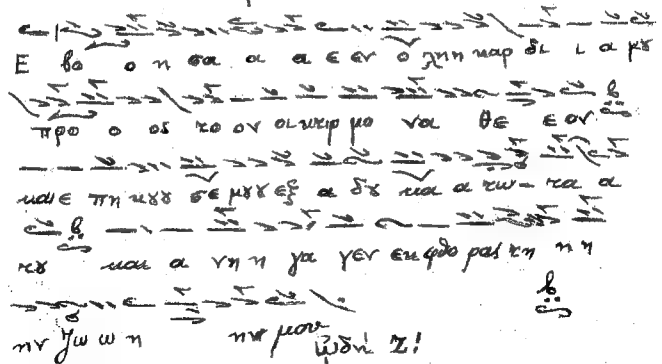 Ε βο ο η σα α α ε εν ο λη η καρ δι ι α μȣ
προ ο ος το ον οι κτιρ μο να θε ε ον
και ε πη κȣȣ σε μȣȣ εξ α δȣ κα α τω τα α
τȣ και α νη η γα γεν εκ φθο ρας τη η η
ην ζω ω η ην μου ᾠδή Ζ!